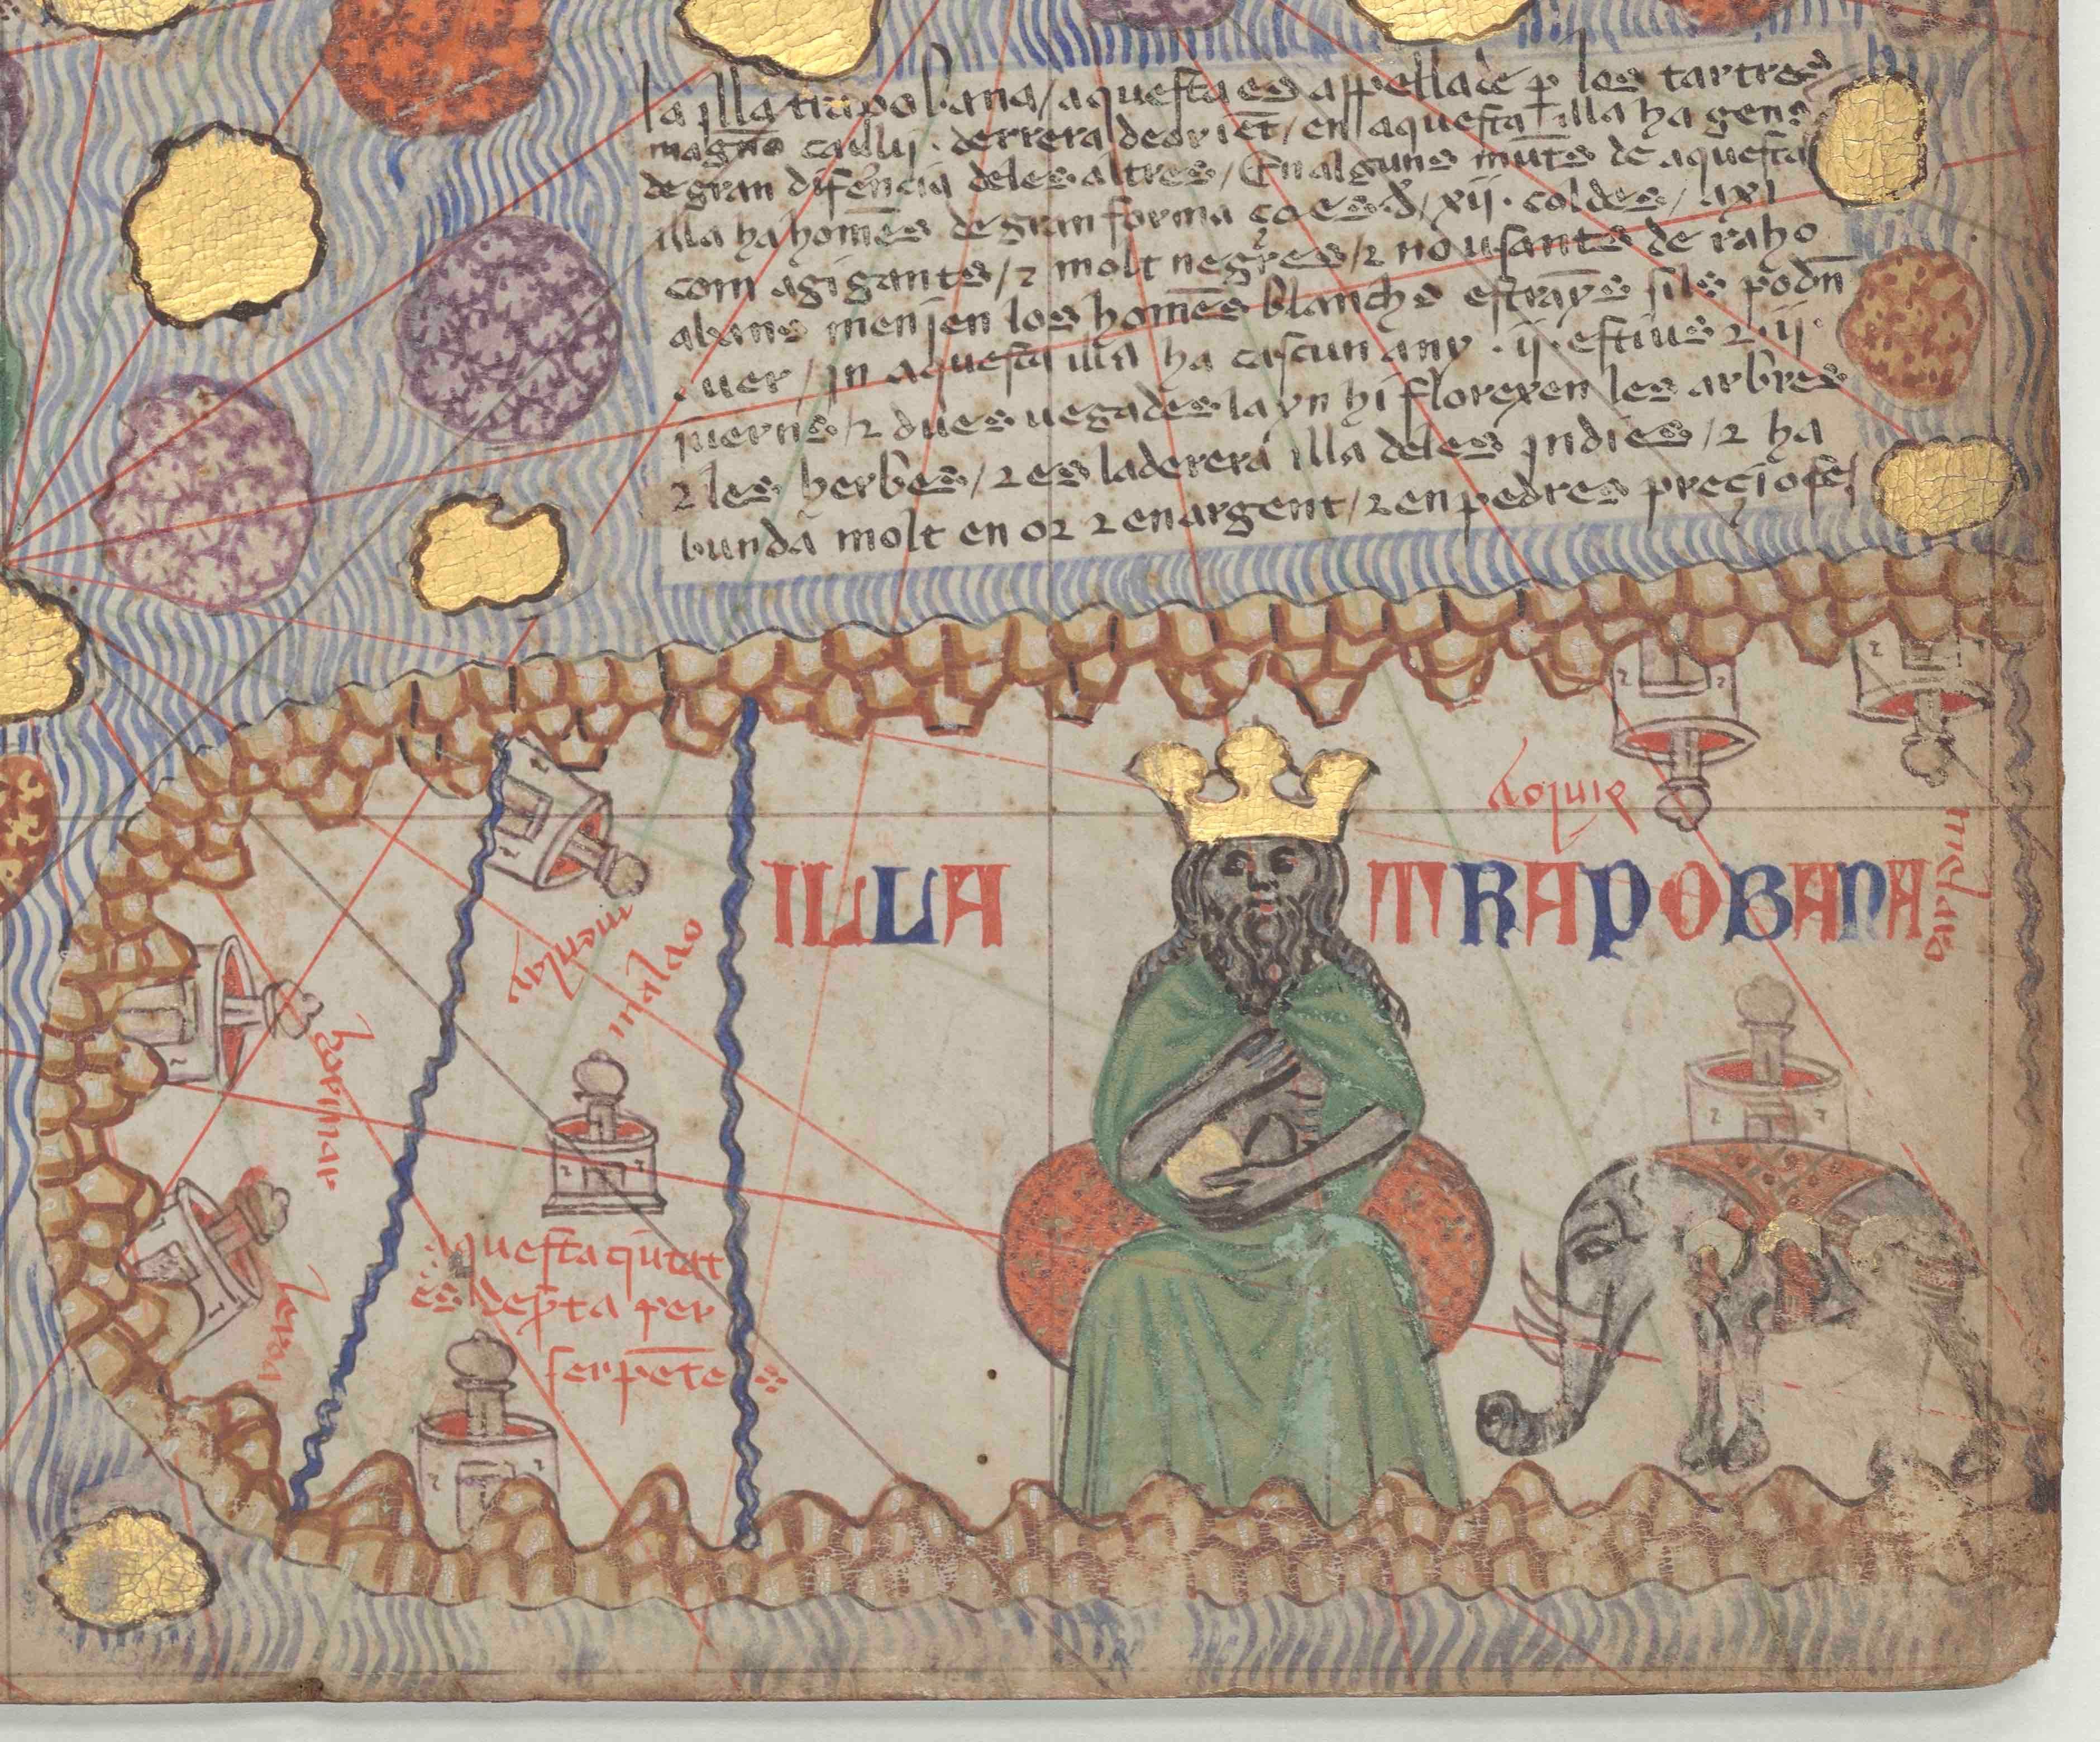 la illa trapobana / aquesta es appellade p los tartres
magno caulij . derrera de oriēt / en aquesta illa ha gens
de gran difērencia deles altres / En alguns mūts de aquesta
illa ha homēs de gran forma ço es d / xij . coldes / axi
com agigants / ⁊ molt negres / ⁊ no usants de raho
abans menjen los homēs blanchs estrayns sils podn̄
auer / jn aquesta illa ha cascun any . ij . estius ⁊ . ij .
juerns / ⁊ dues uegades layn hi florexen les arbres
⁊ les herbes / ⁊ es la derera illa deles jndies / ⁊ ha
bunda molt en or ⁊ en argent / ⁊ en pedres precioses
ILLA TRAPOBANA
malao
menlay
hormar
leroa
aquesta ciutat
es depta per
serpēts